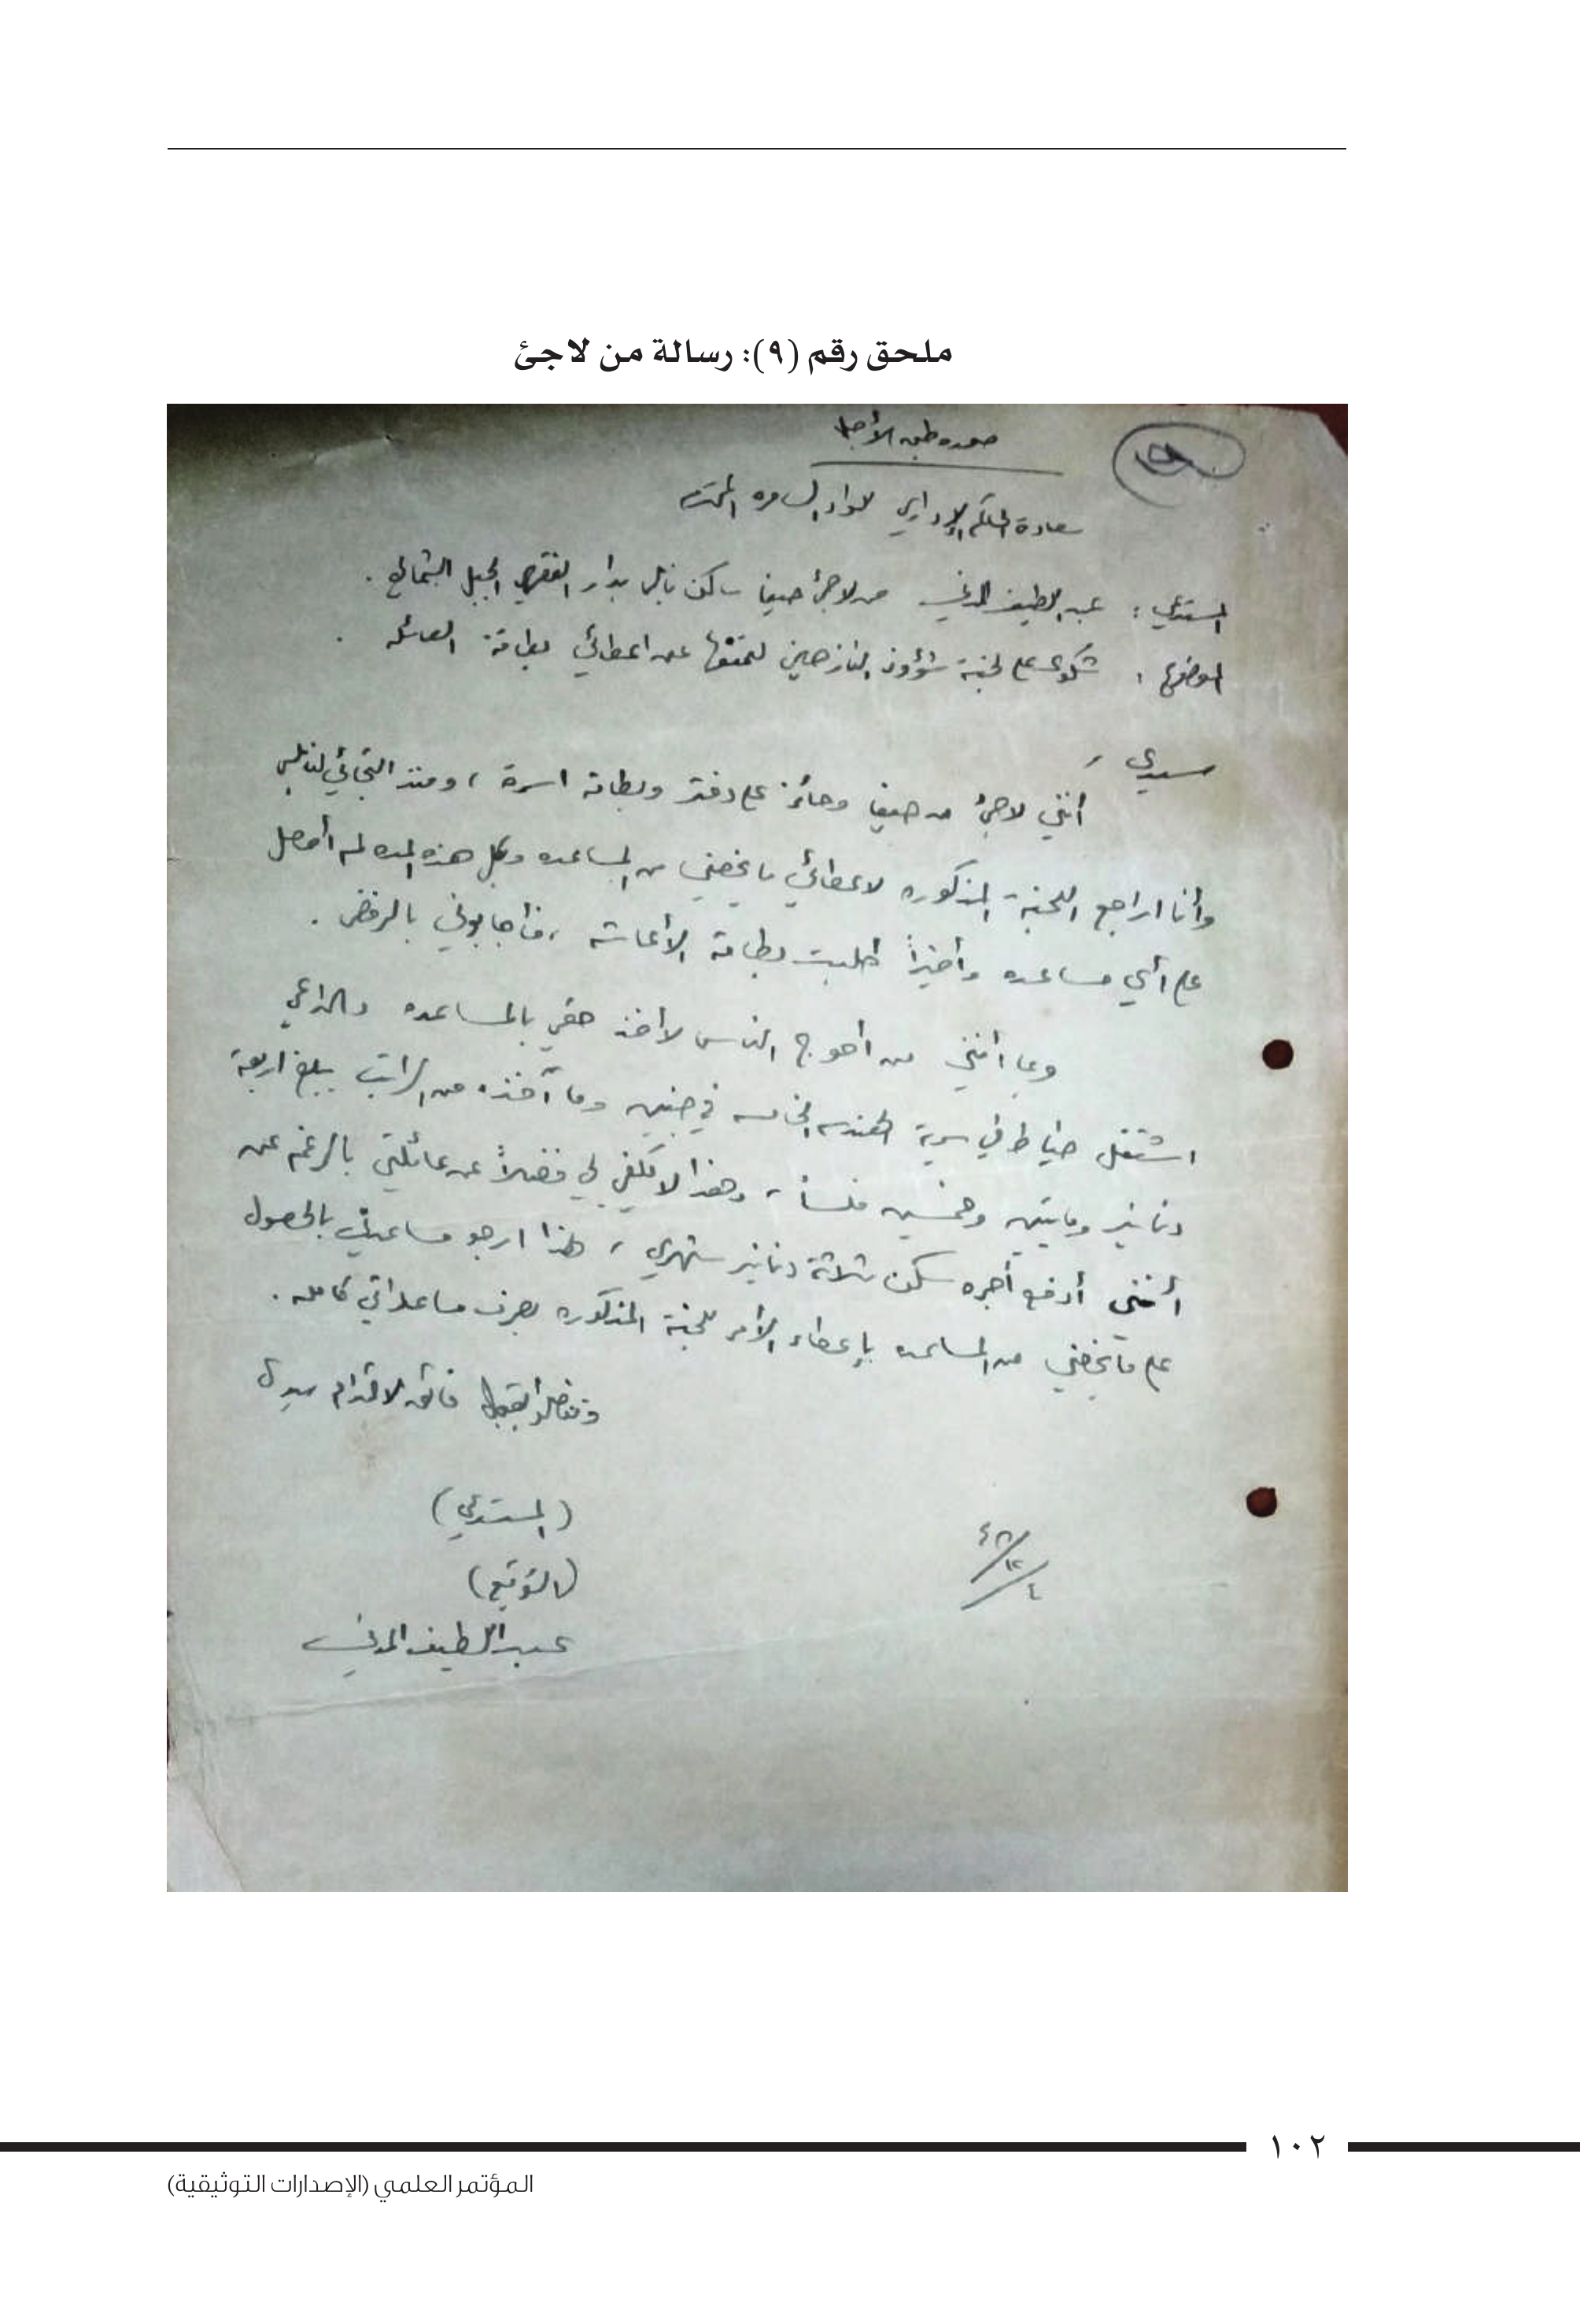 ملحق رقم (٩): رسالة من لاجئ
صوره طبق الأصل
سعادة الحاكم الإداري للواء السامره المحترم
المستدعي : عبد اللطيف المدني من لاجئ حيفا ساكن نابلس بدار الجبل الشمالي .
الموضوع : شكوى على لجنة شؤون النازحين لتمنعها عن اعطائي بطاقة العائله .
سيدي ،
أنني لاجئ من حيفا وحائز على دفتر وبطاقة اسرة ، ومنذ التجائي لنابلس
وأنا اراجع اللجنة المذكوره لاعطائي ما يخصني من المساعده وكل هذه المده لم أحصل
على أي مساعده وأخيراً طلبت بطاقة الأعاشه ، فأجابوني بالرفض .
وبما أنني من أحوج الناس لأخذ حقي بالمساعده
اشتغل خياط في سرية الهندسه الخامسه في جنين وما آخذه من الراتب يبلغ اربعة
دنانير ومايتين وخمسين فلساً ، وهذا لا يكفي لي فضلاً عن عائلتي بالرغم عن
أنني أدفع أجره سكن ثلاثة دنانير شهري ، لهذا ارجو مساعدتي بالحصول
على ما يخصني من المساعده بإعطاء الأمر للجنة المذكوره بصرف مساعداتي كامله .
وتفضلوا بقبول فائق الاحترام سيدي
(المستدعي)
(التوقيع)
عبد اللطيف المدني
٤٨/١٢/٤
١٠٢
المؤتمر العلمي (الإصدارات التوثيقية)